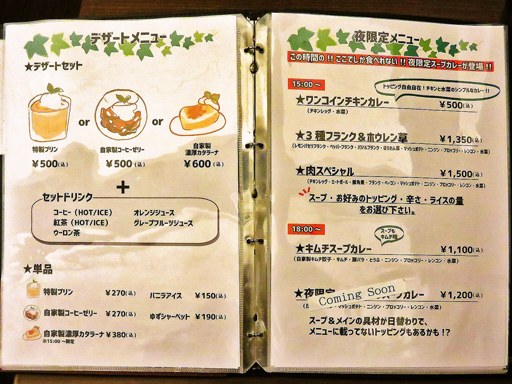 デザートメニュー
★デザートセット
or
or
特製プリン
¥500(込)
自家製コーヒーゼリー
¥500(込)
自家製
濃厚カタラーナ
¥600(込)
+
セットドリンク
コーヒー(HOT/ICE) オレンジジュース
紅茶(HOT/ICE) グレープフルーツジュース
ウーロン茶
★単品
特製プリン ¥270(込) バニラアイス ¥150(込)
自家製コーヒーゼリー ¥270(込) ゆずシャーベット ¥190(込)
自家製濃厚カタラーナ ¥380(込)
※15:00～限定
夜限定メニュー
この時間の!! ここでしか食べれない!! 夜限定スープカレーが登場!!
15:00～
トッピング自由自在!チキンと水菜のシンプルなカレー!!
★ワンコインチキンカレー ¥500(込)
(チキンレッグ・水菜)
★3種フランク&ホウレン草 ¥1,350(込)
★肉スペシャル ¥1,500(込)
スープ・お好みのトッピング・辛さ・ライスの量
をお選び下さい。
18:00～
スープも
キムチ味
★キムチスープカレー ¥1,100(込)
★夜限定 スープカレー ¥1,200(込)
Coming Soon
スープ&メインの具材が日替わりで、
メニューに載ってないトッピングもあるかも!?